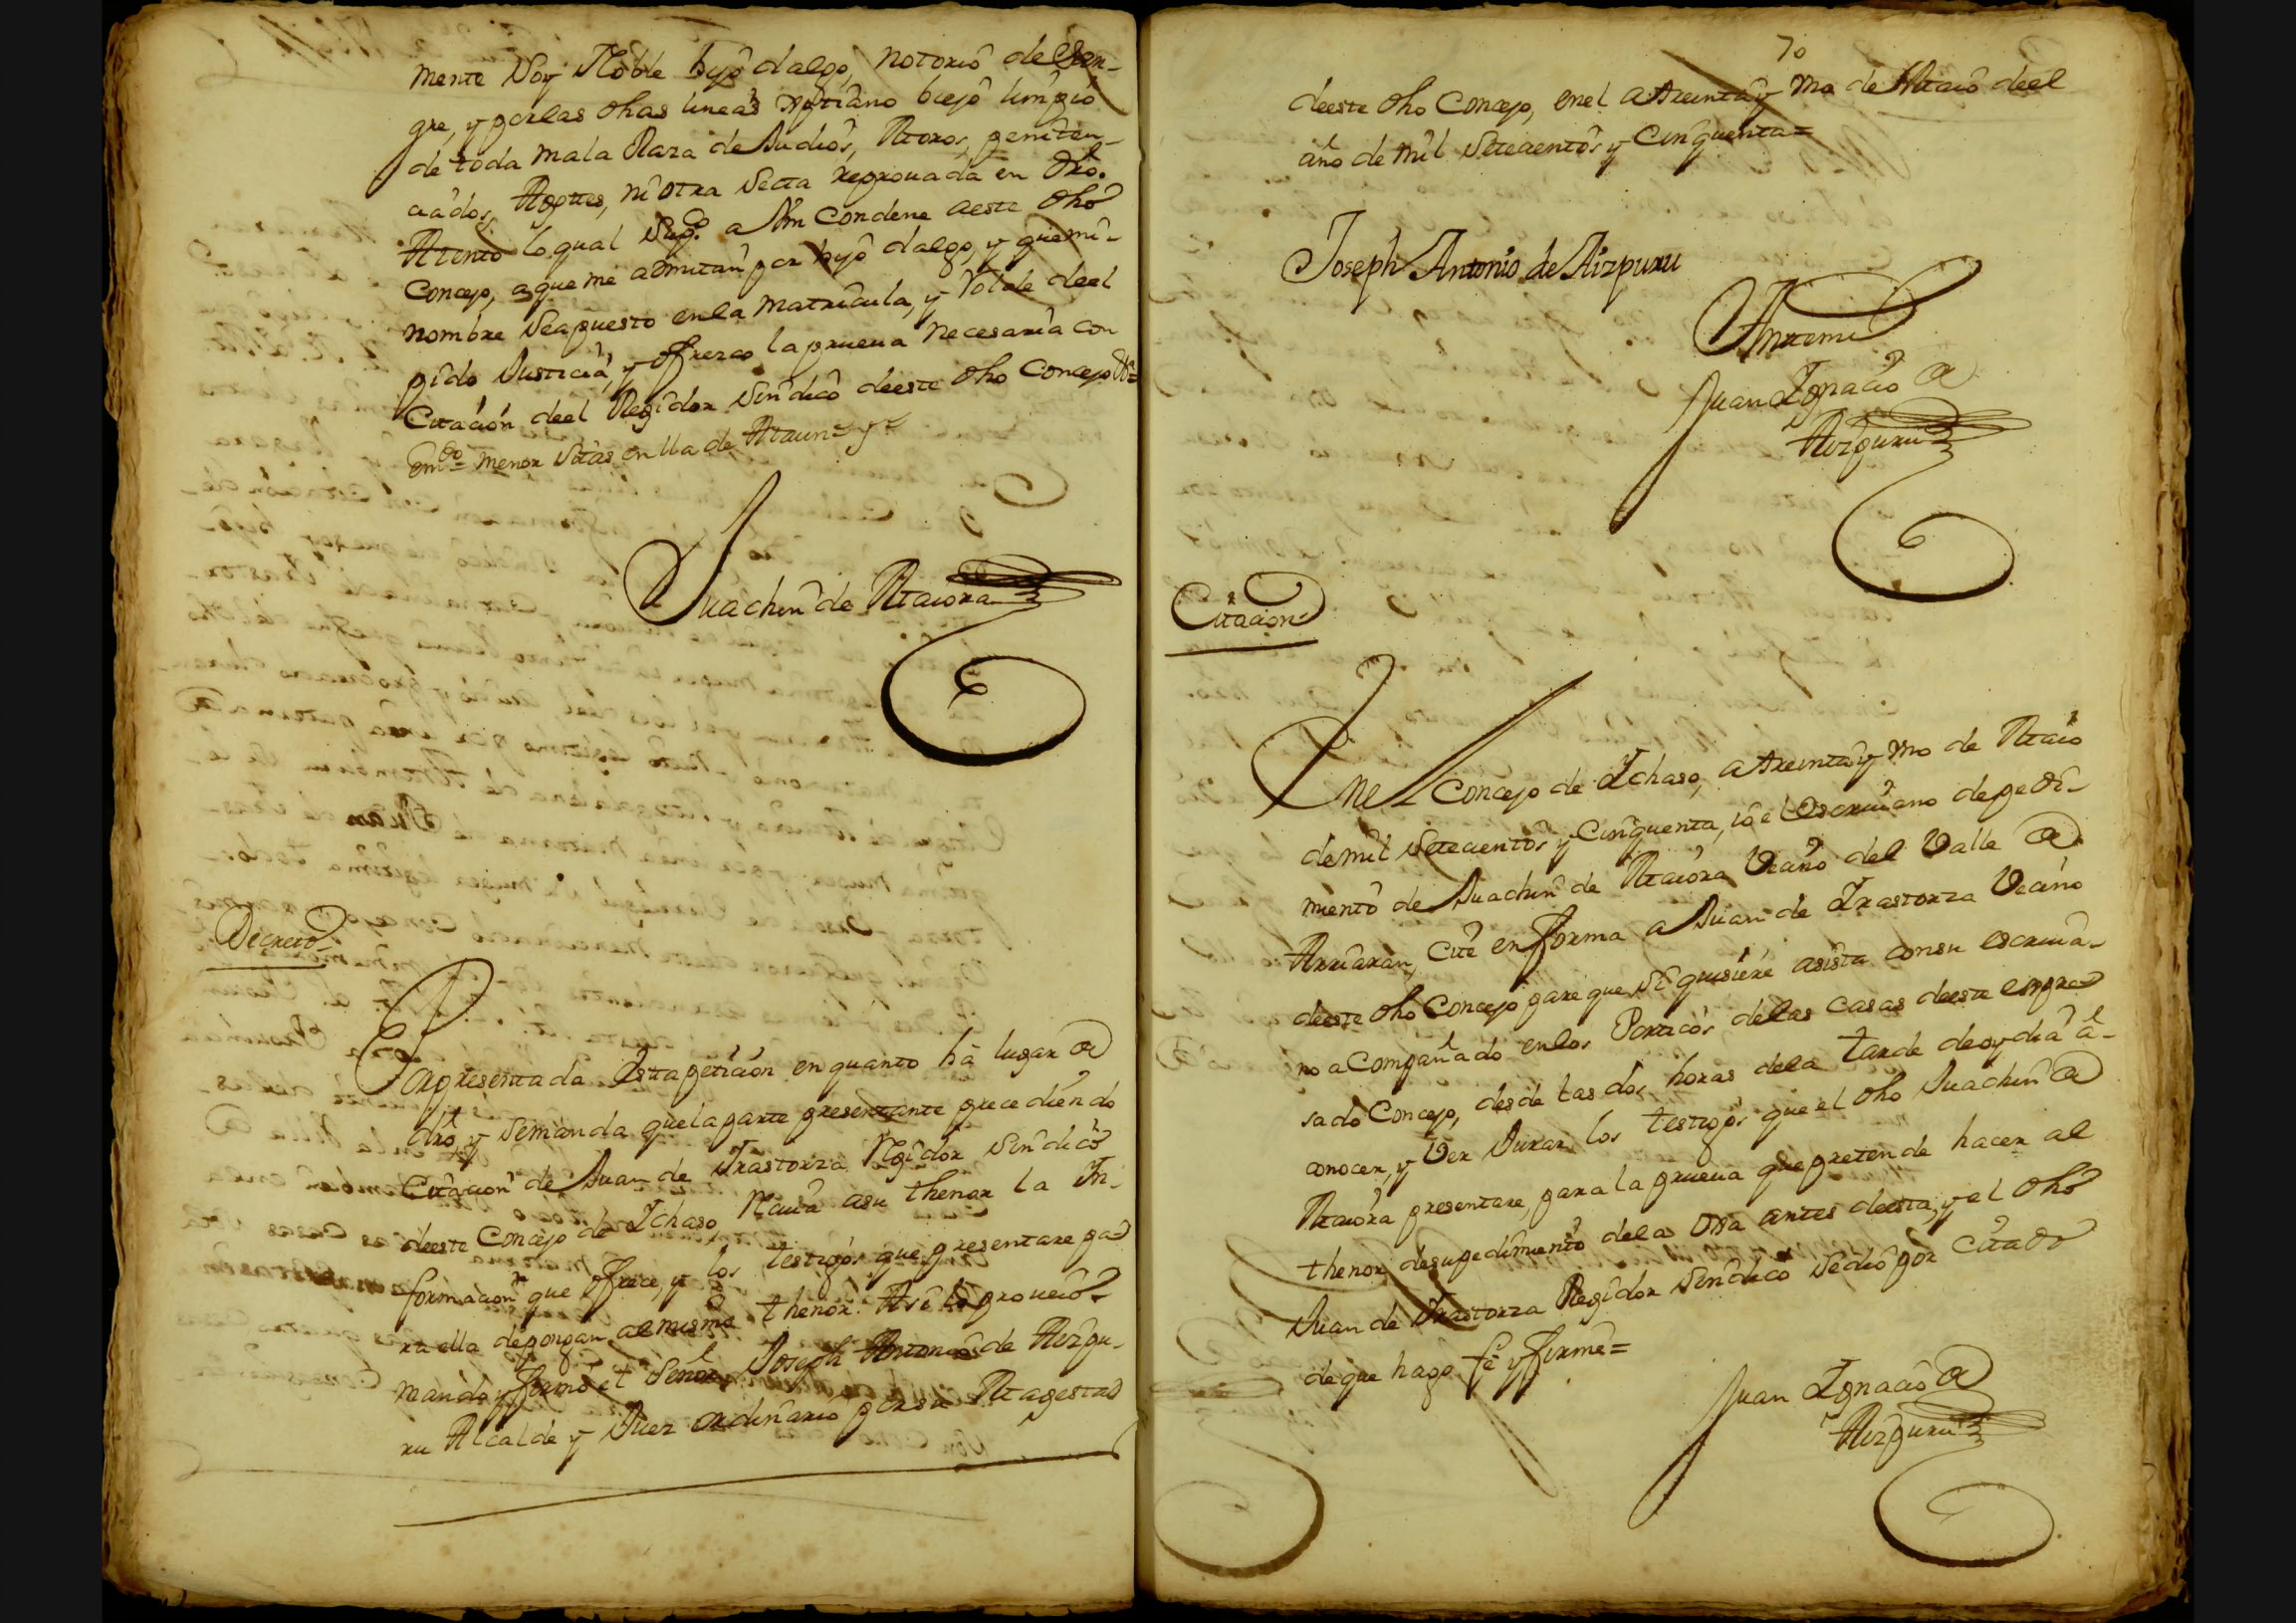 mente Soy Noble hijo dalgo, notorio de San-
gre, y por las dhas lineas xptiano biejo limpio
de toda mala Raza de Judios, Moros, peniten-
ciados, Agottes, ni otra Secta reprouada en dro.
Atento lo qual Supco. a Vm Condene a este dho
Concejo, a que me admitan por hijo dalgo, y que mi
nombre Sea puesto en la matricula, y Rolde de el
pido Justicia, y ofrezco la prueua necesaria con
Citacion de el Regidor Sindico de este dho Concejo
emdo. menor
Juachin de Maiora
Decreto
Por presentada Esta peticion en quanto ha lugar de
dro, y Se manda que la parte presentante precediendo
Citacion de Juan de Irastorza Regidor Sindico
de este Concejo de Ichaso, Reciua a su thenor la In-
formacion que ofrece, y los testigos que presentare pa-
ra ella depongan al mismo thenor. Asi lo proueio
mando, y firmo el Señor Joseph Antonio de Aizpu-
ru Alcalde y Juez ordinario por su Magestad
70
de este dho Concejo, en el a treinta y uno de Maio de el
año de mil Setecientos y Cinquenta=
Joseph Antonio de Aizpuru
Ante mi
Juan Ignacio de
Aizpuru
Citacion
En el Concejo de Ichaso, a treinta y uno de Maio
de mil Setecientos y Cinquenta, io el escriuano de pedi-
miento de Juachin de Maiora Vecino del Valle de
Arriaran, Cite en forma a Juan de Irastorza Vecino
de este dho Concejo para que Si quisiere asista con su escriua-
no a Compañado en los Porticos de las Casas de este expre-
sado Concejo, desde las dos horas de la tarde de oy dia a
conocer, y Ver Jurar los testigos que el dho Juachin de
Maiora presentare, para la prueua que pretende hacer al
thenor de su pedimiento de la oja antes de esta, y el dho
Juan de Irastorza Regidor Sindico Se dio por Citado
de que hago fe y firme=
Juan Ignacio de
Aizpuru